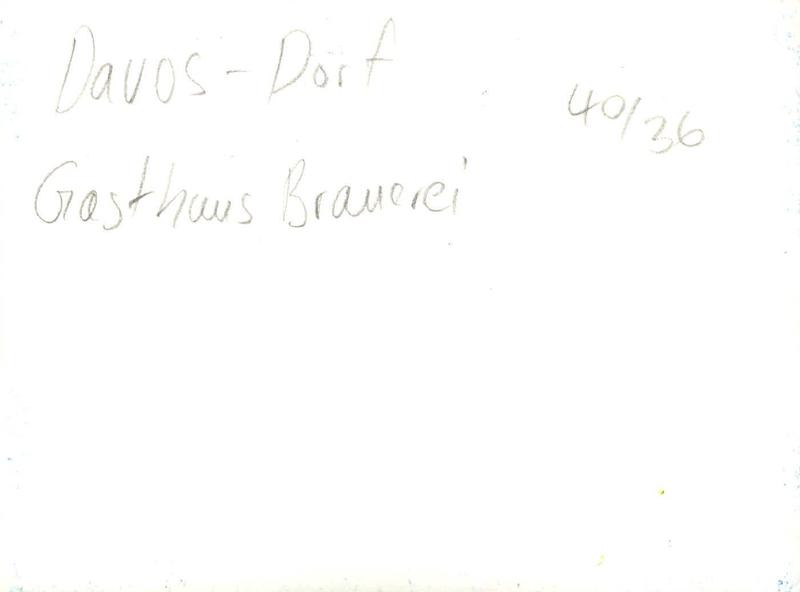 Davos - Dorf
40/36
Gasthaus Brauerei